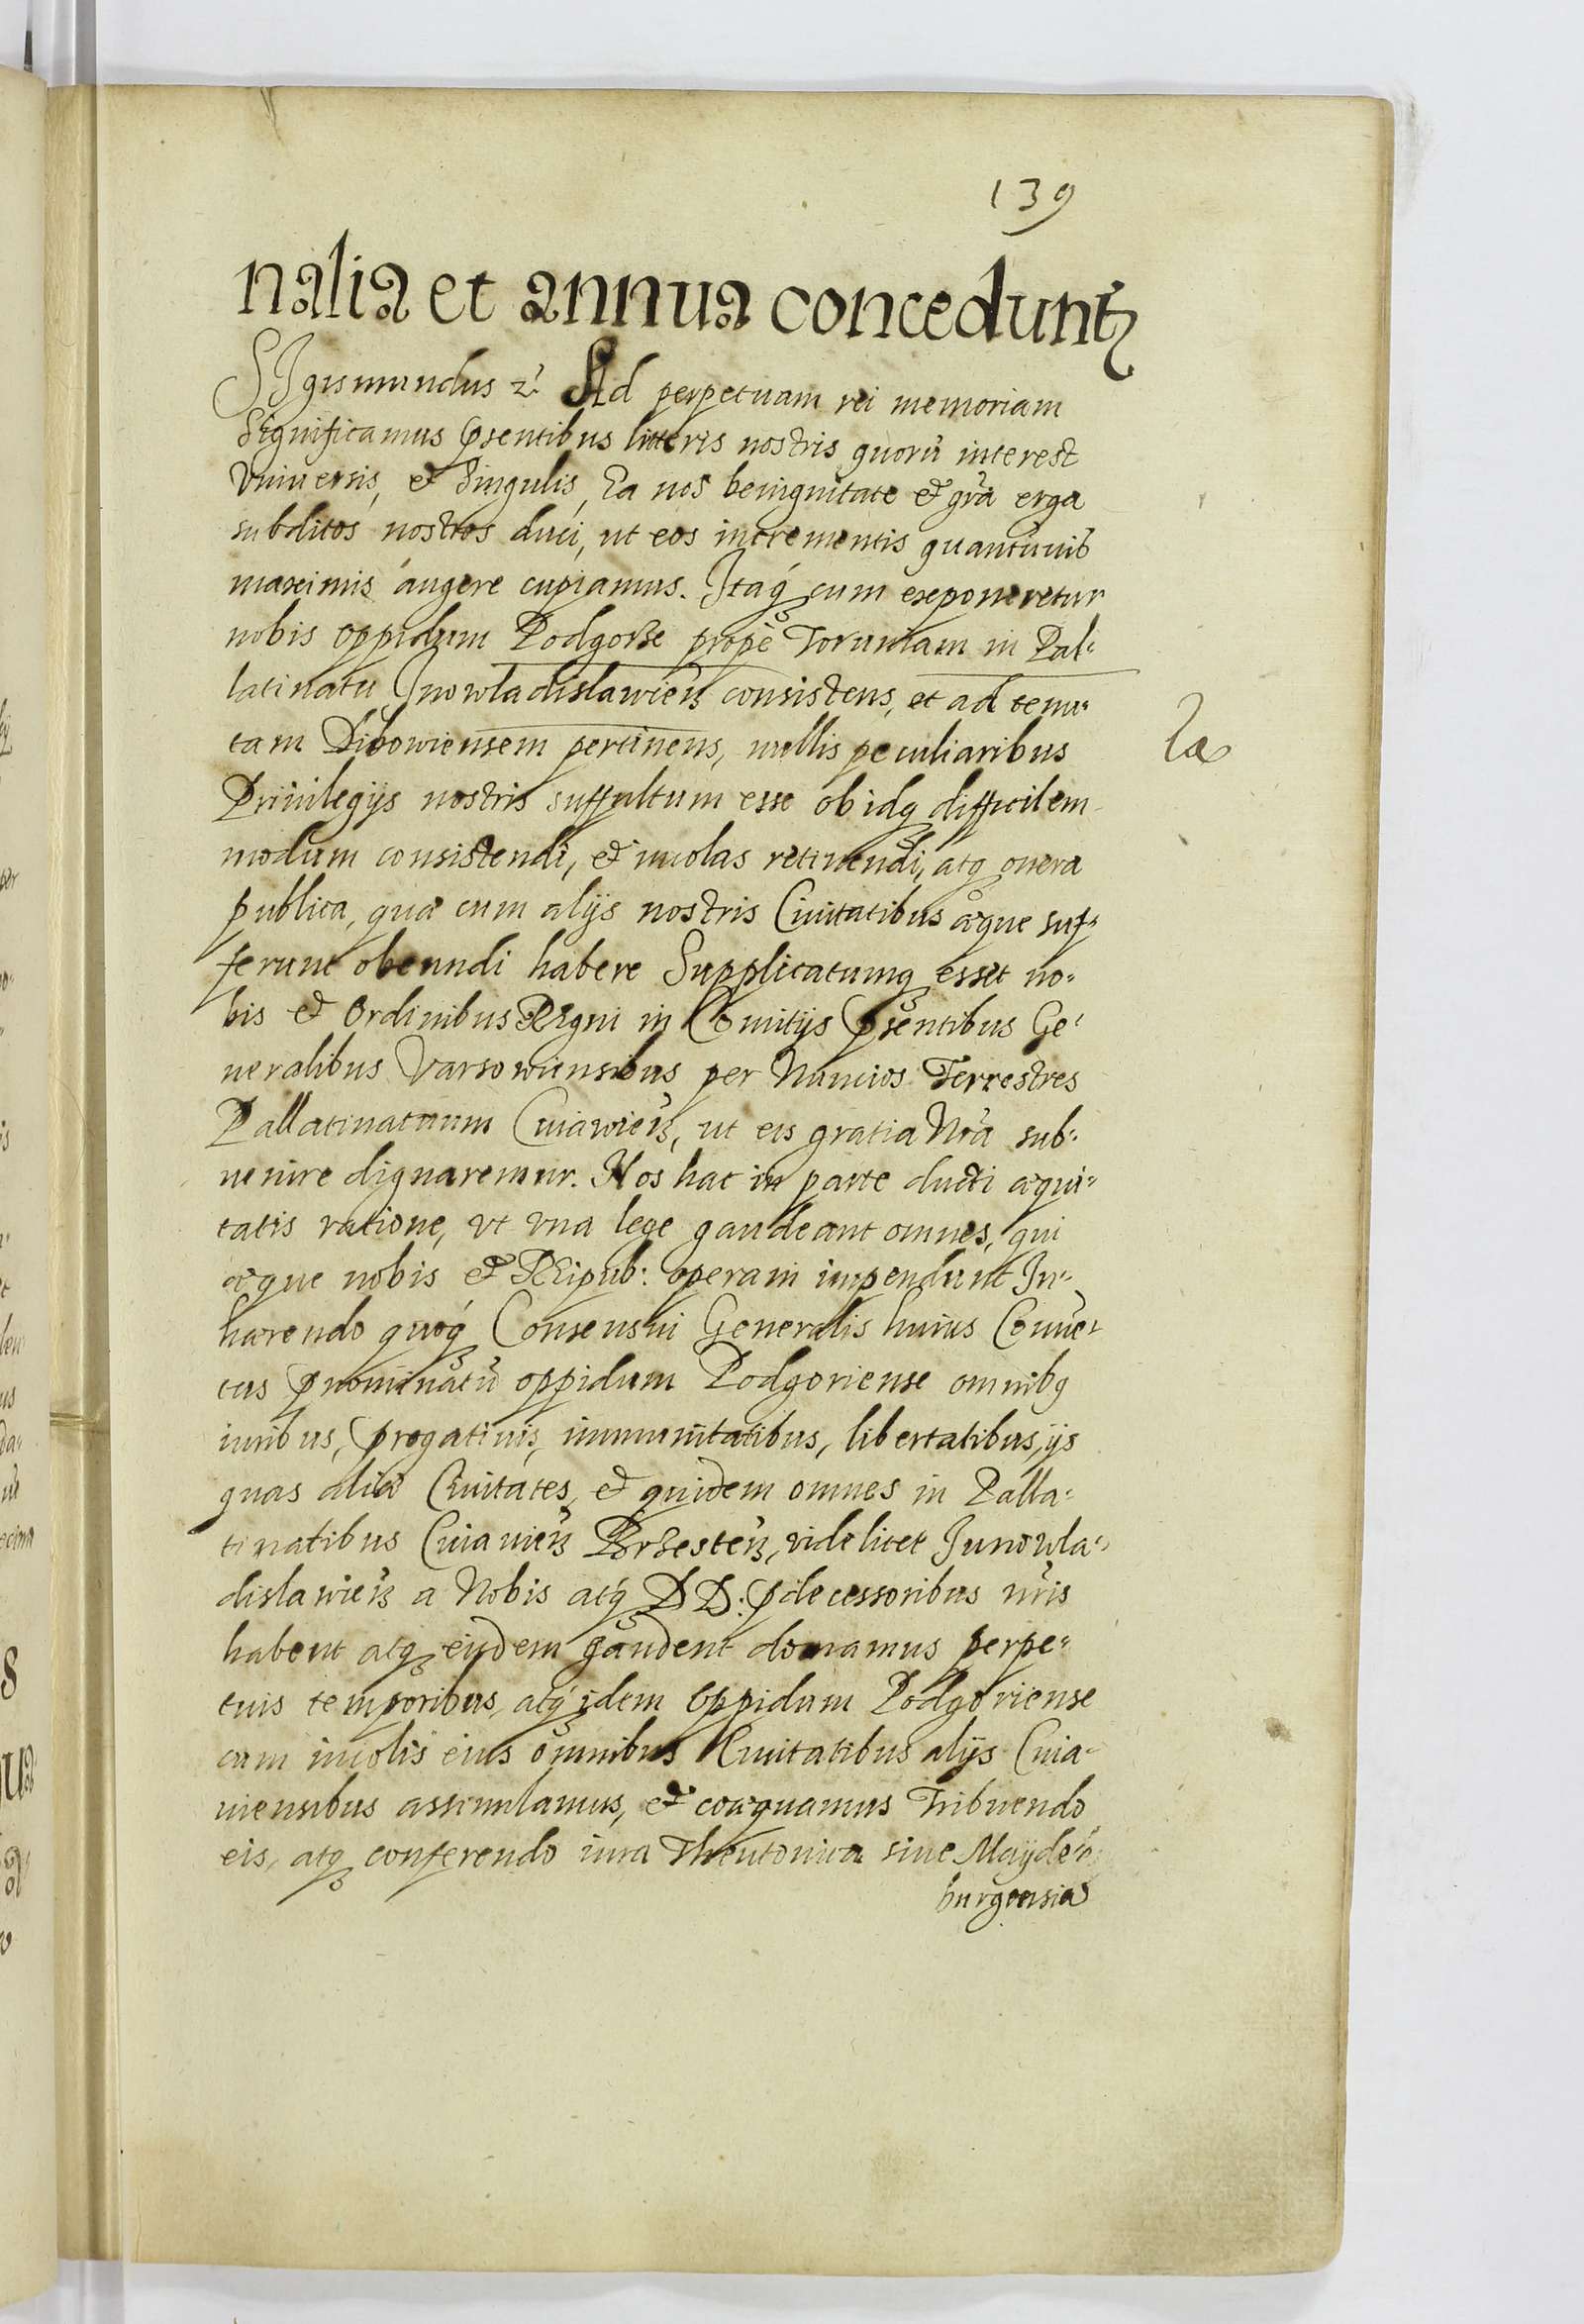 139
nalia et annua conceduntʒ
SIgismundus ꝛ̃ Ad perpetuam rei memoriam
Significamus p̃sentibus litteris nostris quorũ interest
Vniuersis, et Singulis, Ea nos benignitate et gr̃a erga
subditos nostros duci, ut eos incrementis quantũuis
maximis augere cupiamus. Itaq́ʒ cum exponeretur
nobis oppidum Podgorze propè Toruniam in Pal-
latinatu Inowladislawieñ consistens, et ad tenu-
tam Dibowiensem pertinens, nullis peculiaribus
Priuilegijs nostris suffultum esse ob idqʒ difficilem
modum consistendi, et incolas retinendi, atqʒ onera
publica, quæ cum alijs nostris Ciuitatibus æque suf-
ferunt obeundi habere Supplicatumqʒ esset no-
bis et Ordinibus REgni in Comitijs p̃sentibus Ge-
neralibus Varsowiensibus per Nuncios Terrestres
Pallatinatuum Cuiawieñ, ut eis gratia Nr̃a sub-
uenire dignaremur. Nos hac in parte ducti æqui-
tatis ratione, vt vna lege gaudeant omnes, qui
æque nobis et REipub: operam impendunt In-
hærendo quoq́ʒ Consensui Generalis huius Conuẽ-
tus p̃nominatũ oppidum Podgoriense omnibq
iuribus, p̃rogatiuis, immunitatibus, libertatibus, ijs
quas aliæ Ciuitates, et quidem omnes in Palla-
tinatibus Cuiauieñ Brzesteñ, videlicet Junowla-
dislawieñ a Nobis atq́ʒ DD: p̃decessoribus nr̃is
habent atqʒ eisdem gaudent donamus perpe-
tuis temporibus, atq́ʒ idem Oppidum Podgoriense
cum incolis eius omnibus Ciuitatibus alijs Cuia-
uiensibus assimulamus, et coæquamus Tribuendo
eis, atqʒ conferendo iura Theutonica siue Maÿde-
burgensia